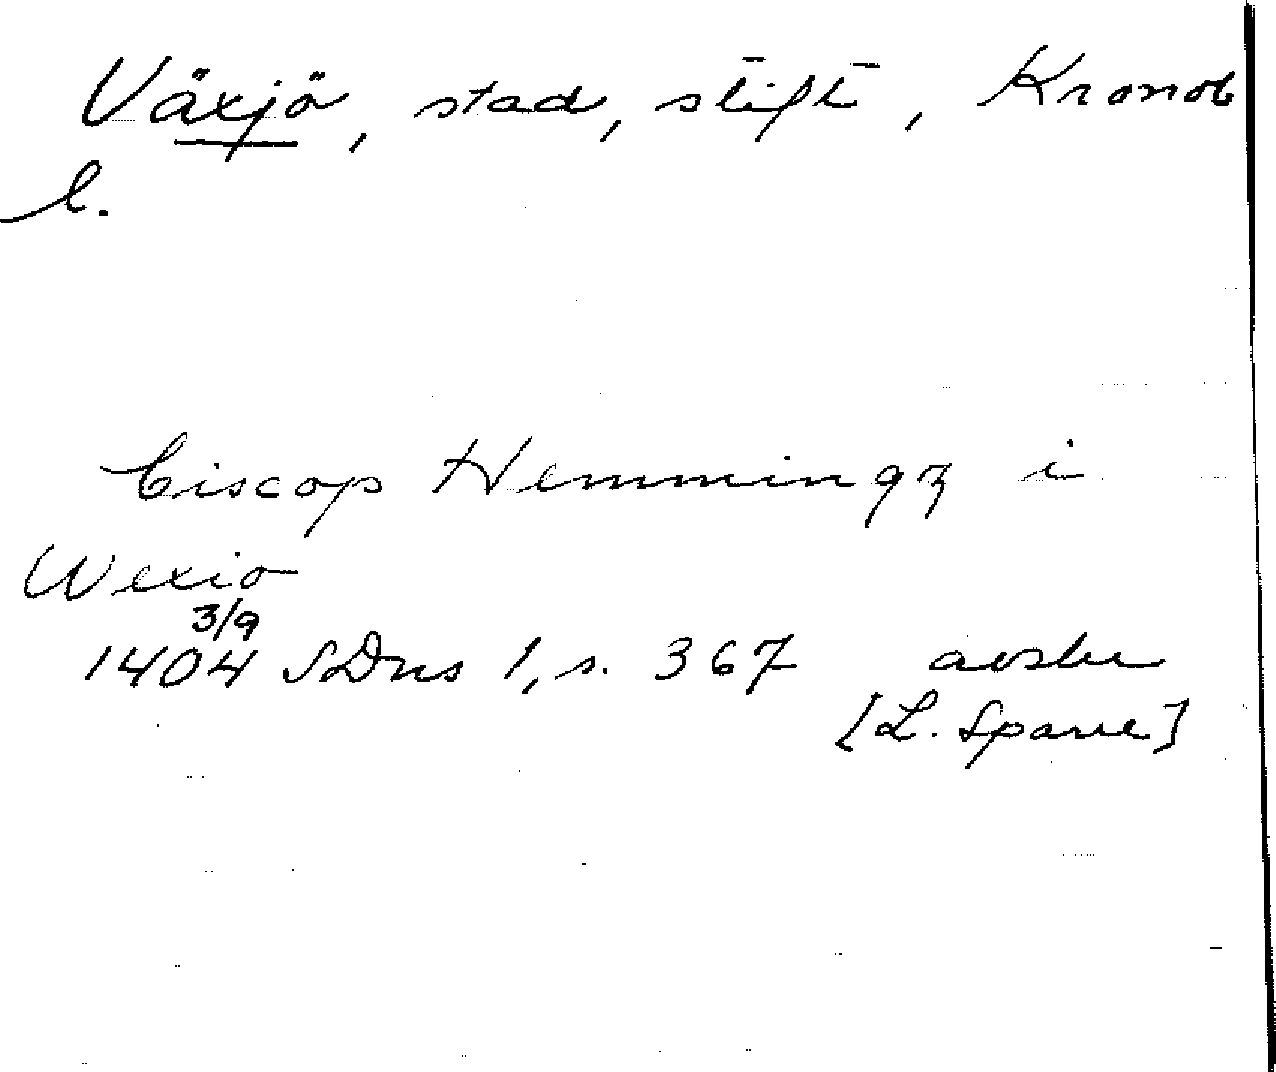 Växjö, stad, stift, Kronob
l.
biscop Hemmingz i
Wexio
3/9
1404 SDns 1, s. 367 avskr
[L. Sparre]